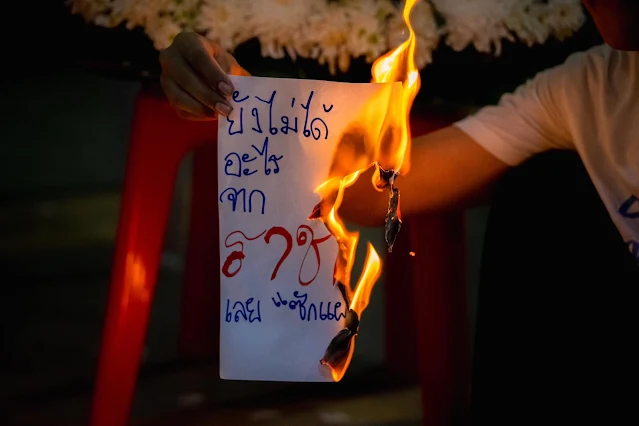 ยังไม่ได้
อะไร
จาก
ราช
เลย "ซักแผ